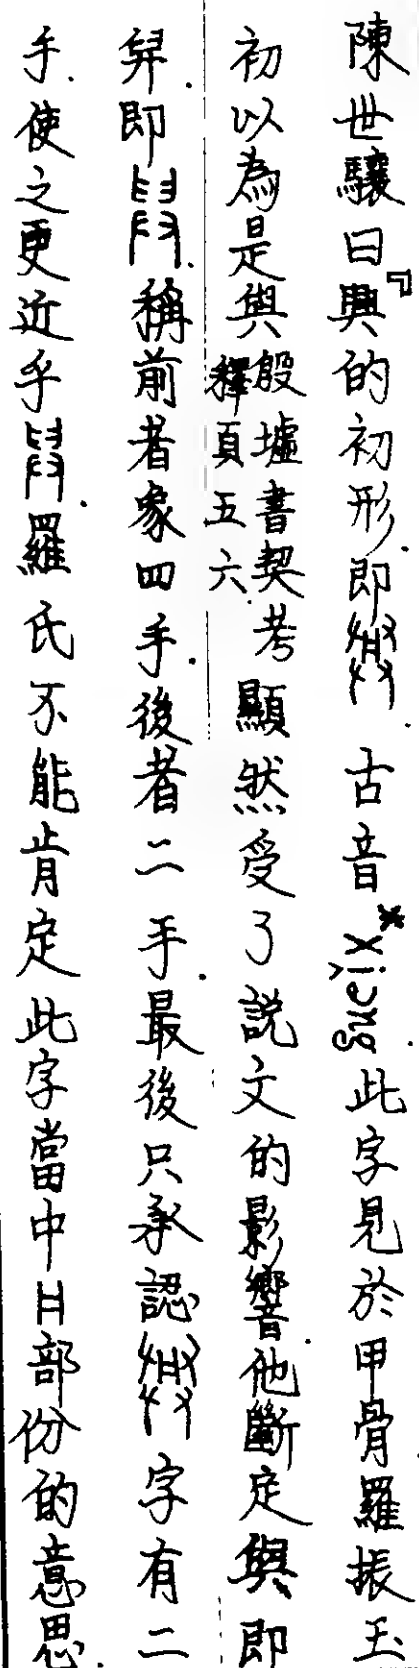 陳世驤曰『興的初形.即.古音*xiəng.此字見於甲骨羅振玉
初以為是與殷墟書契考釋頁五六.顯然受了說文的影響.他斷定與即
舁.即.稱前者象四手.後者二手.最後只承認字有二
手.使之更近乎.羅氏不能肯定此字當中部份的意思.